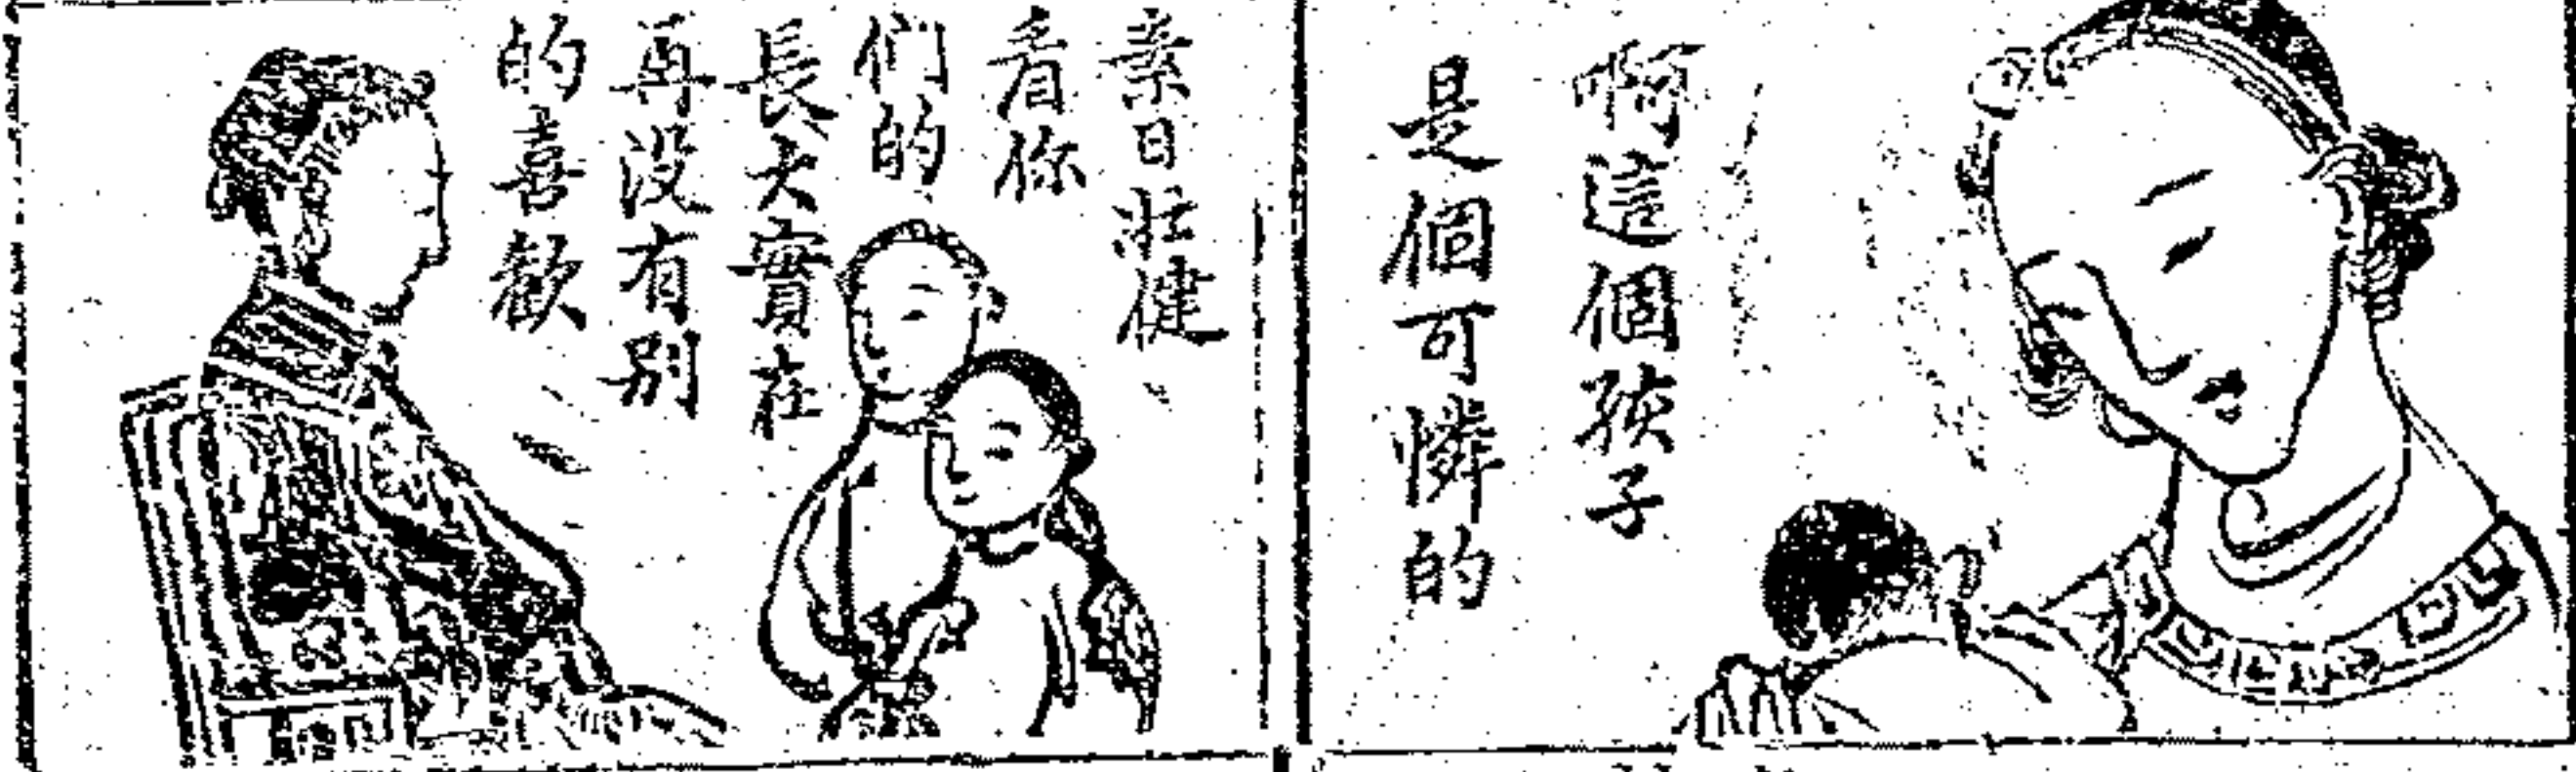 啊這個孩子
是個可憐的
素日壯健
看你
们的
長大實在
再没有别
的喜歡